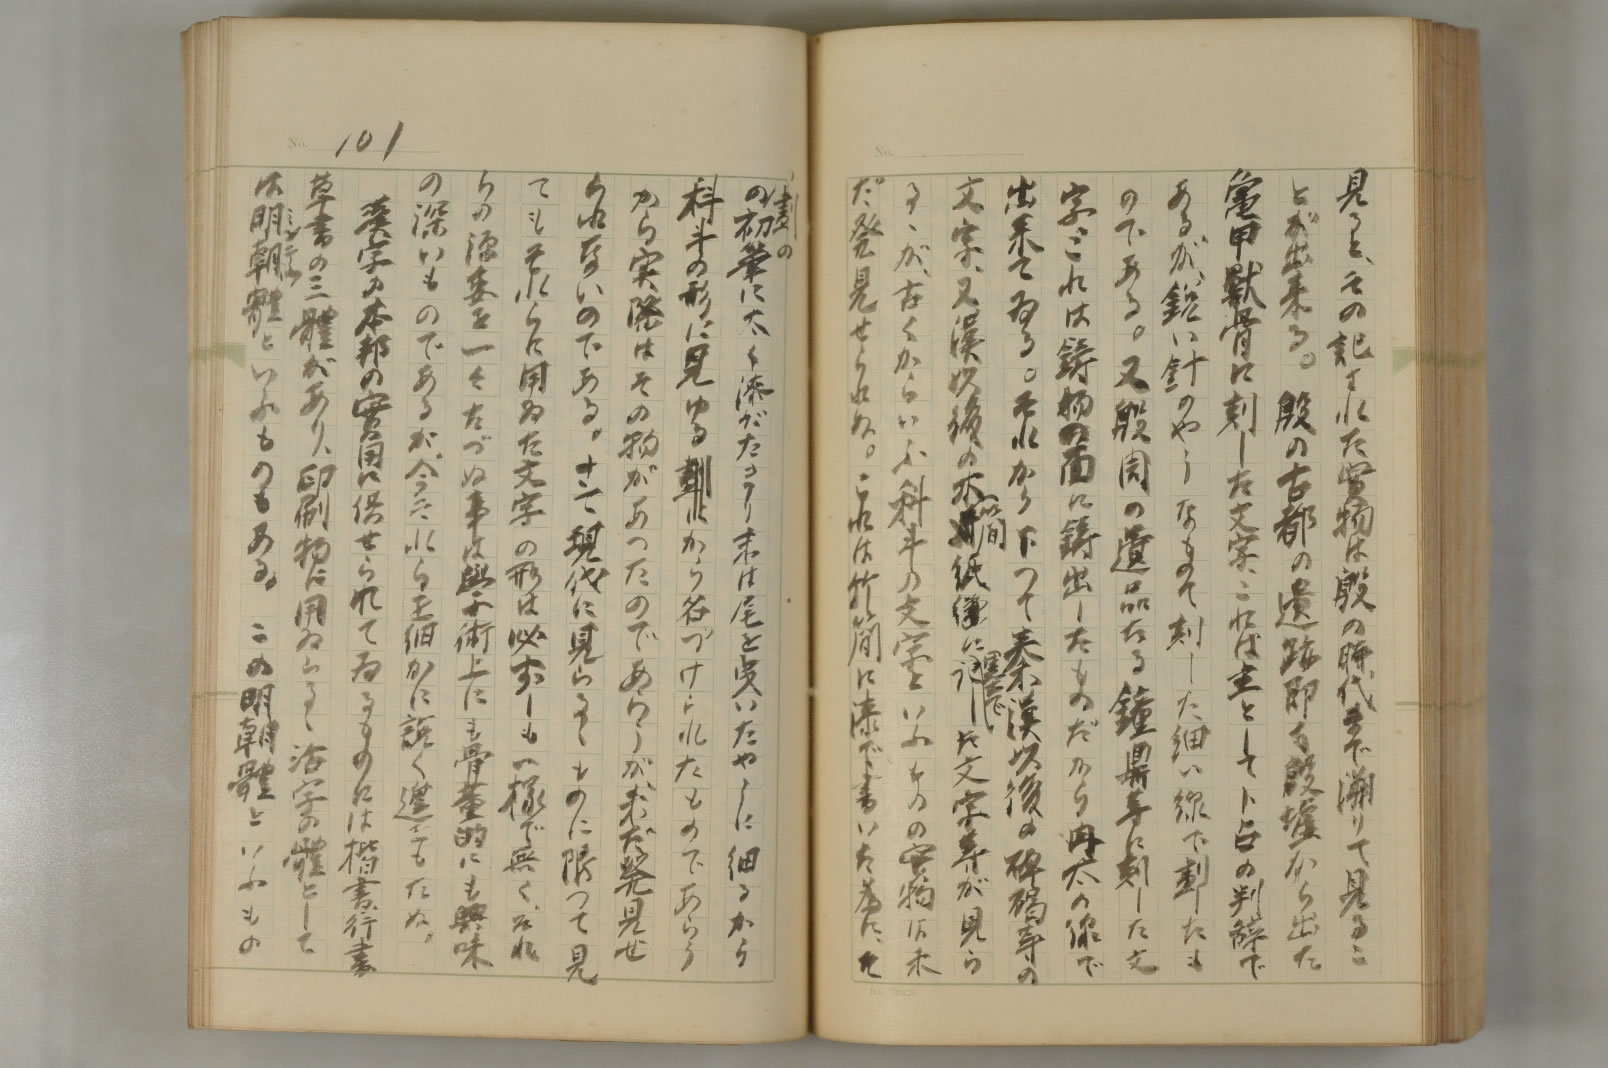 No.
見ると、その記された実物は殷の時代まで溯りて見るこ
とが出来る。殷の古都の遺跡即ち殷墟から出た
亀甲獣骨に刻した文字、これは主として卜占の判辞で
あるが、鋭い針のやうなもので刻した細い線で劃したも
のである。又殷周の遺品たる鐘鼎等に刻した文
字、これは鋳物の面に鋳出したものだから肉太の線で
出来てゐる。それから下つて秦漢以後の碑碣等の
文字、又漢以後の木簡紙絹に墨で記した文字等が見ら
るゝが、古くからいふ科斗の文字といふものの実物は未
だ発見せられぬ。これは竹簡に漆で書いた為に、そ
No. 101
の劃の初筆に太く漆がたまり末は尾を曳いたやうに細るから
科斗の形に見ゆるから名づけられたものであらう
から実際はその物があつたのであらうが未だ発見せ
られないのである。さて現代に見らるゝものに限つて見
てもそれらに用ゐた文字の形は必ずしも一様で無く、それ
らの源委を一々たづぬ事は学術上にも骨董的にも興味
の深いものであるが、今それらを細かに説く遑をもたぬ。
漢字の本邦の実用に供せられてゐるものには楷書、行書
草書の三體があり、印刷物に用ゐらるゝ活字の體として
は明朝體といふものもある。この明朝體といふもの